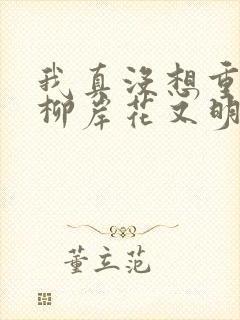 我真没想重
柳岸花又明
董立范